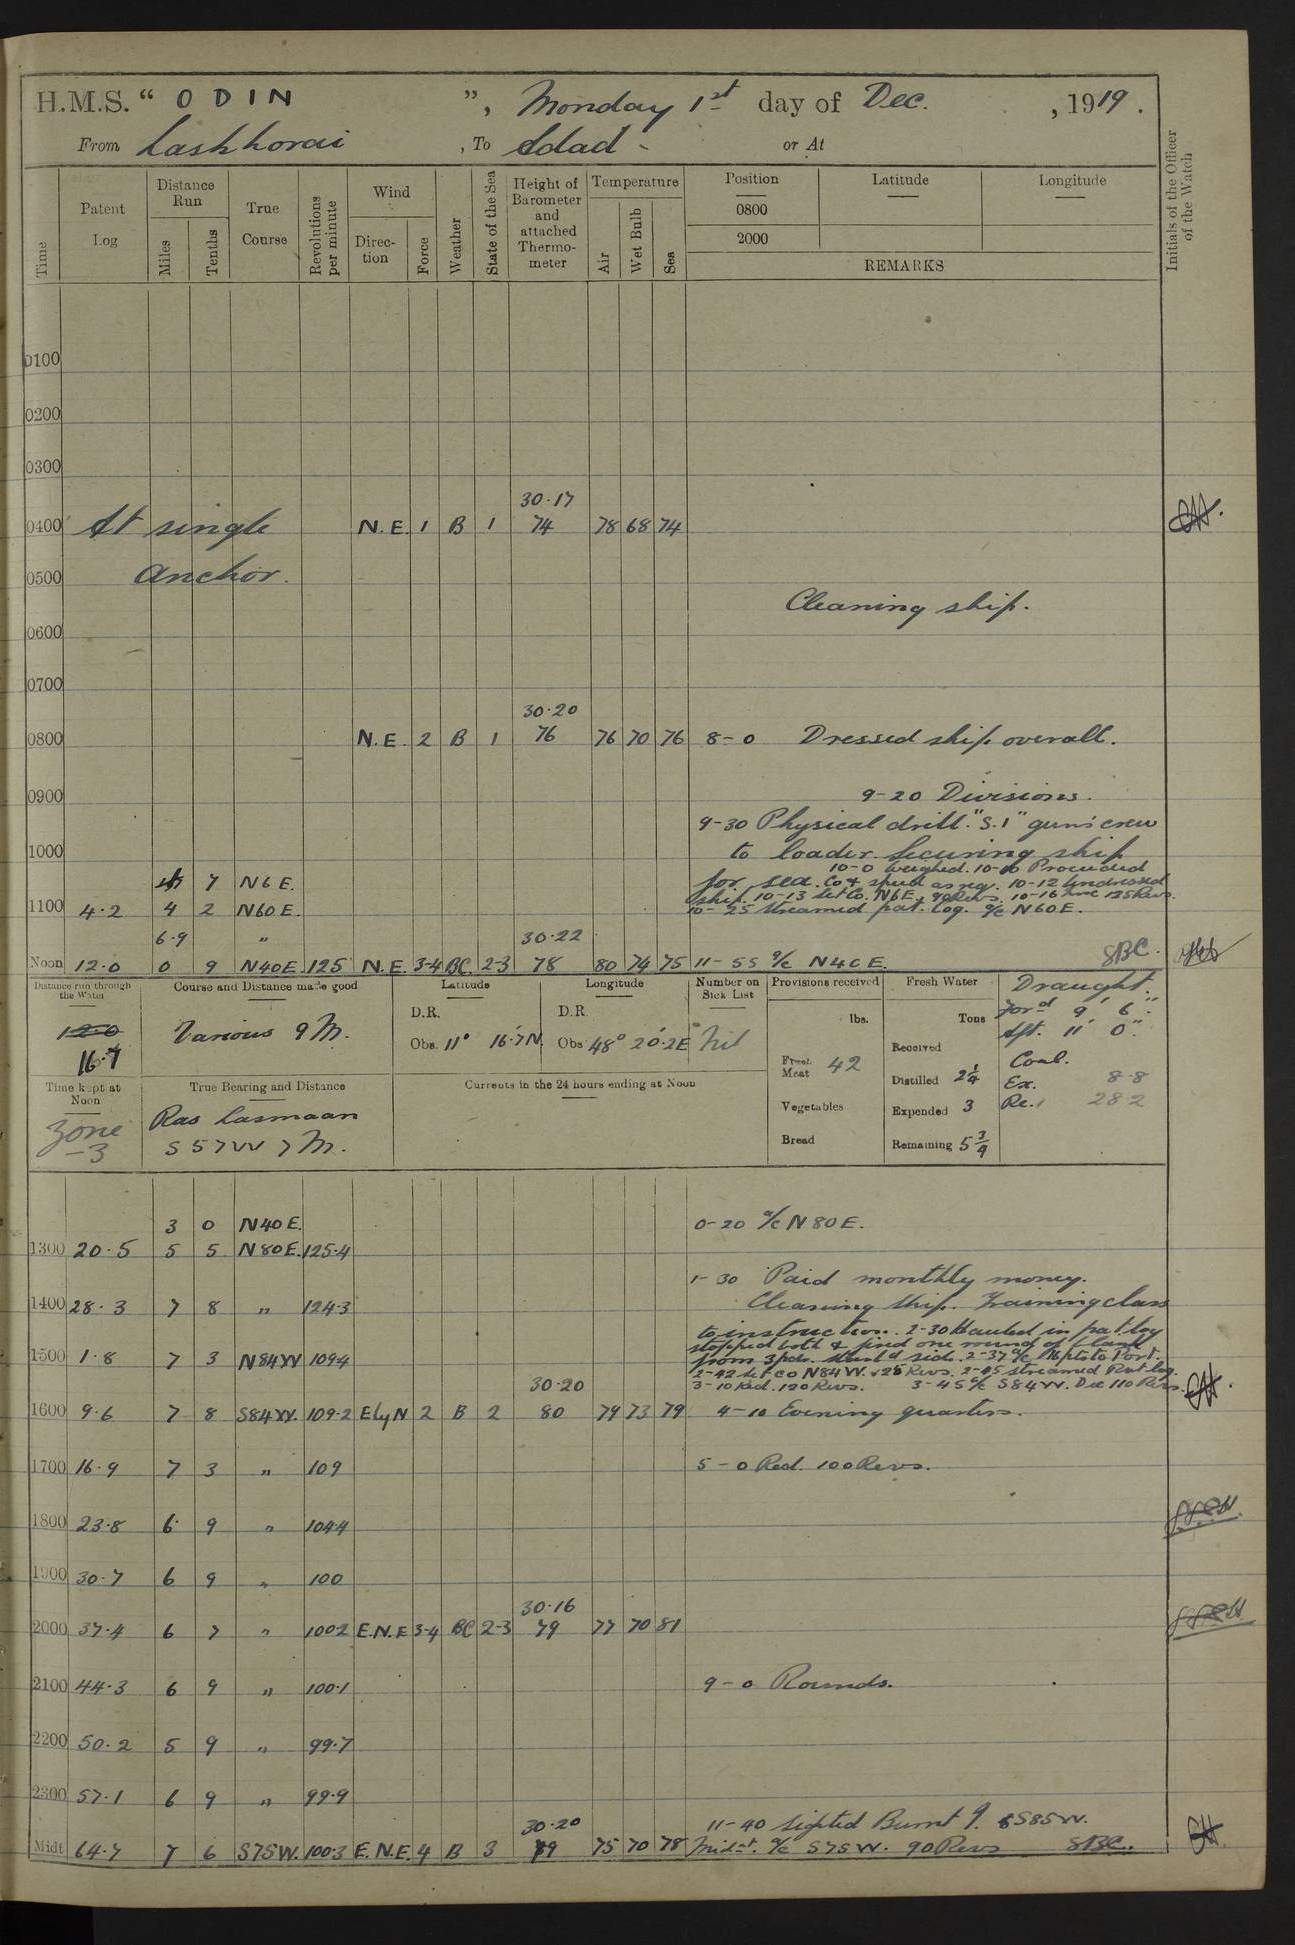 H.M.S. " ODIN ", Monday 1st day of Dec. , 1919.
From Laskhorai , To Adad - or At
Initials of the Officer of the Watch
Time
Patent Log
Distance Run
Miles
Tenths
True Course
Revolutions per minute
Wind
Direc-tion
Force
Weather
State of the Sea
Height of Barometer and attached Thermo-meter
Temperature
Air
Wet Bulb
Sea
Position Latitude Longitude
0800
2000
REMARKS
0100
0200
0300
30·17
0400 At single N.E. 1 B 1 74 78 68 74
0500 anchor.
Cleaning ship.
0600
0700
30·20
0800 N.E. 2 B 1 76 76 70 76 8-0 Dressed ship overall.
0900 9-20 Divisions.
9-30 Physical drill. "S.1" gun's crew
1000 to loader. Securing ship
10-0 Weighed. 10-10 Proceeded
7 N6E. for sea. Co & speed as req. 10-12 Undressed
ship. 10-13 Set Co. N6E, 90 Revs. 10-16 Inc 125 Revs.
1100 4·2 4 2 N60E. 10-25 Streamed pat. log. a/c N60E.
6·9 " 30·22
Noon 12·0 0 9 N40E 125 N.E. 3-4 BC. 2-3 78 80 74 75 11-55 a/c N40E. SBC.
Distance run through the Water
12·0
16·7
Course and Distance made good
Various 9 M.
Latitude
D.R.
Obs. 11° 16·7'N.
Longitude
D.R.
Obs 48° 20·2'E
Number on Sick List
Nil
Provisions received
lbs.
Fresh Meat 42
Vegetables
Bread
Fresh Water
Tons
Received
Distilled 2¼
Expended 3
Remaining 5¾
Draught.
For'd 9' 6".
Aft. 11' 0".
Coal.
Ex. 8·8
Re. 282
Time kept at Noon
Zone -3
True Bearing and Distance
Ras Lasmaan
S57W 7 M.
Currents in the 24 hours ending at Noon
3 0 N40E. 0-20 a/c N80E.
1300 20·5 5 5 N80E. 125·4
1-30 Paid monthly money.
1400 28·3 7 8 " 124·3 Cleaning ship. Training class
to instruction. 2-30 Hauled in pat log
stopped both & fired one round of blank
from 3pdr. starb'd side. 2-37 a/c 16 pts to Port.
1500 1·8 7 3 N84W 109·4 2-42 Set co N84W. 125 Revs. 2-45 streamed Pat log.
30·20 3-10 Red. 120 Revs. 3-45 a/c S84W. Dec 110 Revs.
1600 9·6 7 8 S84W. 109·2 E by N 2 B 2 80 79 73 79 4-10 Evening quarters.
1700 16·9 7 3 " 109 5-0 Red. 100 Revs.
1800 23·8 6 9 " 104·4
1900 30·7 6 9 " 100
30·16
2000 37·4 6 7 " 100·2 E.N.E 3-4 BC 2-3 79 77 70 81
2100 44·3 6 9 " 100·1 9-0 Rounds.
2200 50·2 5 9 " 99·7
2300 57·1 6 9 " 99·9
30·20 11-40 Sighted Burnt I. S85W.
Midt 64·7 7 6 S75W. 100·3 E.N.E. 4 B 3 79 75 70 78 Midnt. a/c S75W. 90 Revs SBC.